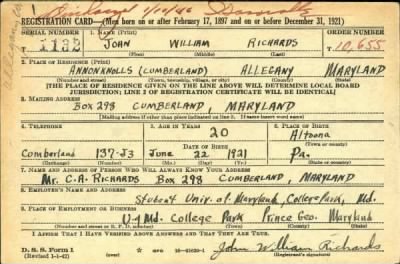 REGISTRATION CARD—(Men born on or after February 17, 1897 and on or before December 31, 1921)
SERIAL NUMBER 1. NAME (Print) ORDER NUMBER
T 1132 JOHN WILLIAM RICHARDS T 10,655
(First) (Middle) (Last)
2. PLACE OF RESIDENCE (Print)
ANNONKNOLLS (CUMBERLAND) ALLEGANY MARYLAND
(Number and street) (Town, township, village, or city) (County) (State)
[THE PLACE OF RESIDENCE GIVEN ON THE LINE ABOVE WILL DETERMINE LOCAL BOARD
JURISDICTION; LINE 2 OF REGISTRATION CERTIFICATE WILL BE IDENTICAL]
3. MAILING ADDRESS
BOX 298 CUMBERLAND, MARYLAND
(Mailing address if other than place indicated on line 2. If same insert word same)
4. TELEPHONE 5. AGE IN YEARS 6. PLACE OF BIRTH
20 Altoona
DATE OF BIRTH (Town or county)
Cumberland 137-J3 June 22 1921 Pa.
(Exchange) (Number) (Mo.) (Day) (Yr.) (State or country)
7. NAME AND ADDRESS OF PERSON WHO WILL ALWAYS KNOW YOUR ADDRESS
Mr. C.A. RICHARDS BOX 298 CUMBERLAND, MARYLAND
8. EMPLOYER'S NAME AND ADDRESS
Student Univ. of Maryland, College Park, Md.
9. PLACE OF EMPLOYMENT OR BUSINESS
U. of Md. College Park Prince Geo. Maryland
(Number and street or R. F. D. number) (Town) (County) (State)
I AFFIRM THAT I HAVE VERIFIED ABOVE ANSWERS AND THAT THEY ARE TRUE.
D. S. S. Form 1
(Revised 1-1-42) John William Richards
(Registrant's signature)